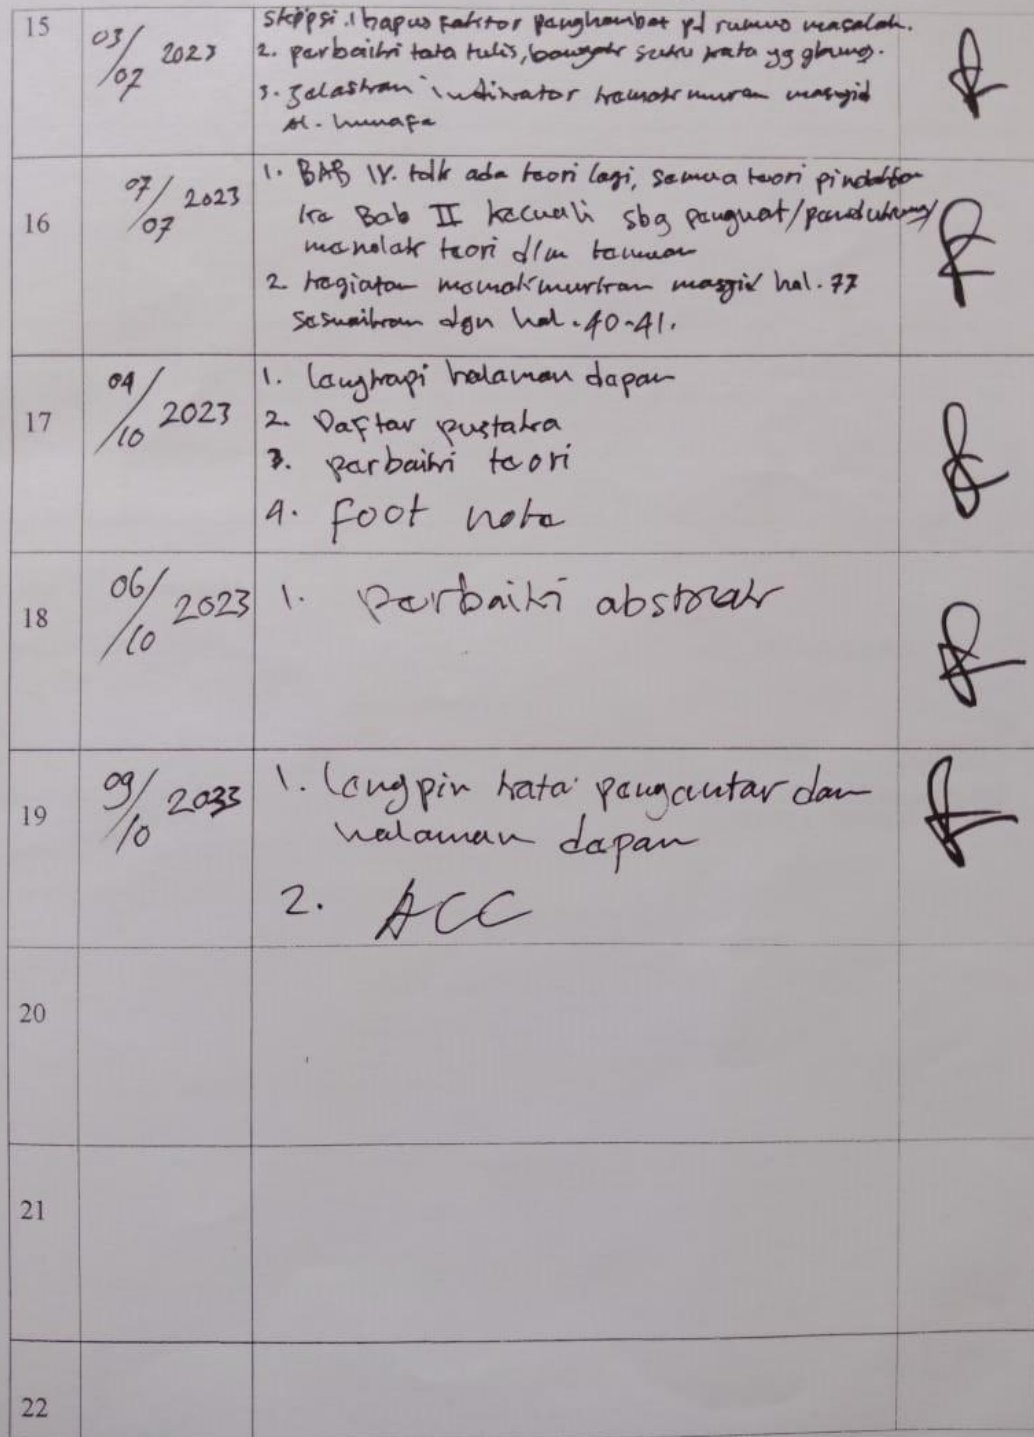 15
03/07 2023
skripsi. 1 hapus faktor penghambat pd rumus masalah.
2. perbaiki tata tulis, banyak suku kata yg gbung.
3. Jelaskan indikator kemakmuran masjid
Al-hunafa
16
07/07 2023
1. BAB IV. tdk ada teori lagi, semua teori pindahkan
ke Bab II kecuali sbg penguat/pendukung/
menolak teori dlm temuan
2 kegiatan memakmurkan masjid hal. 77
sesuaikan dgn hal. 40-41.
17
04/10 2023
1. lengkapi halaman depan
2. Daftar pustaka
3. perbaiki teori
4. foot note
18
06/10 2023
1. perbaiki abstrak
19
09/10 2023
1. kata pengantar dan
halaman depan
2. ACC
20
21
22